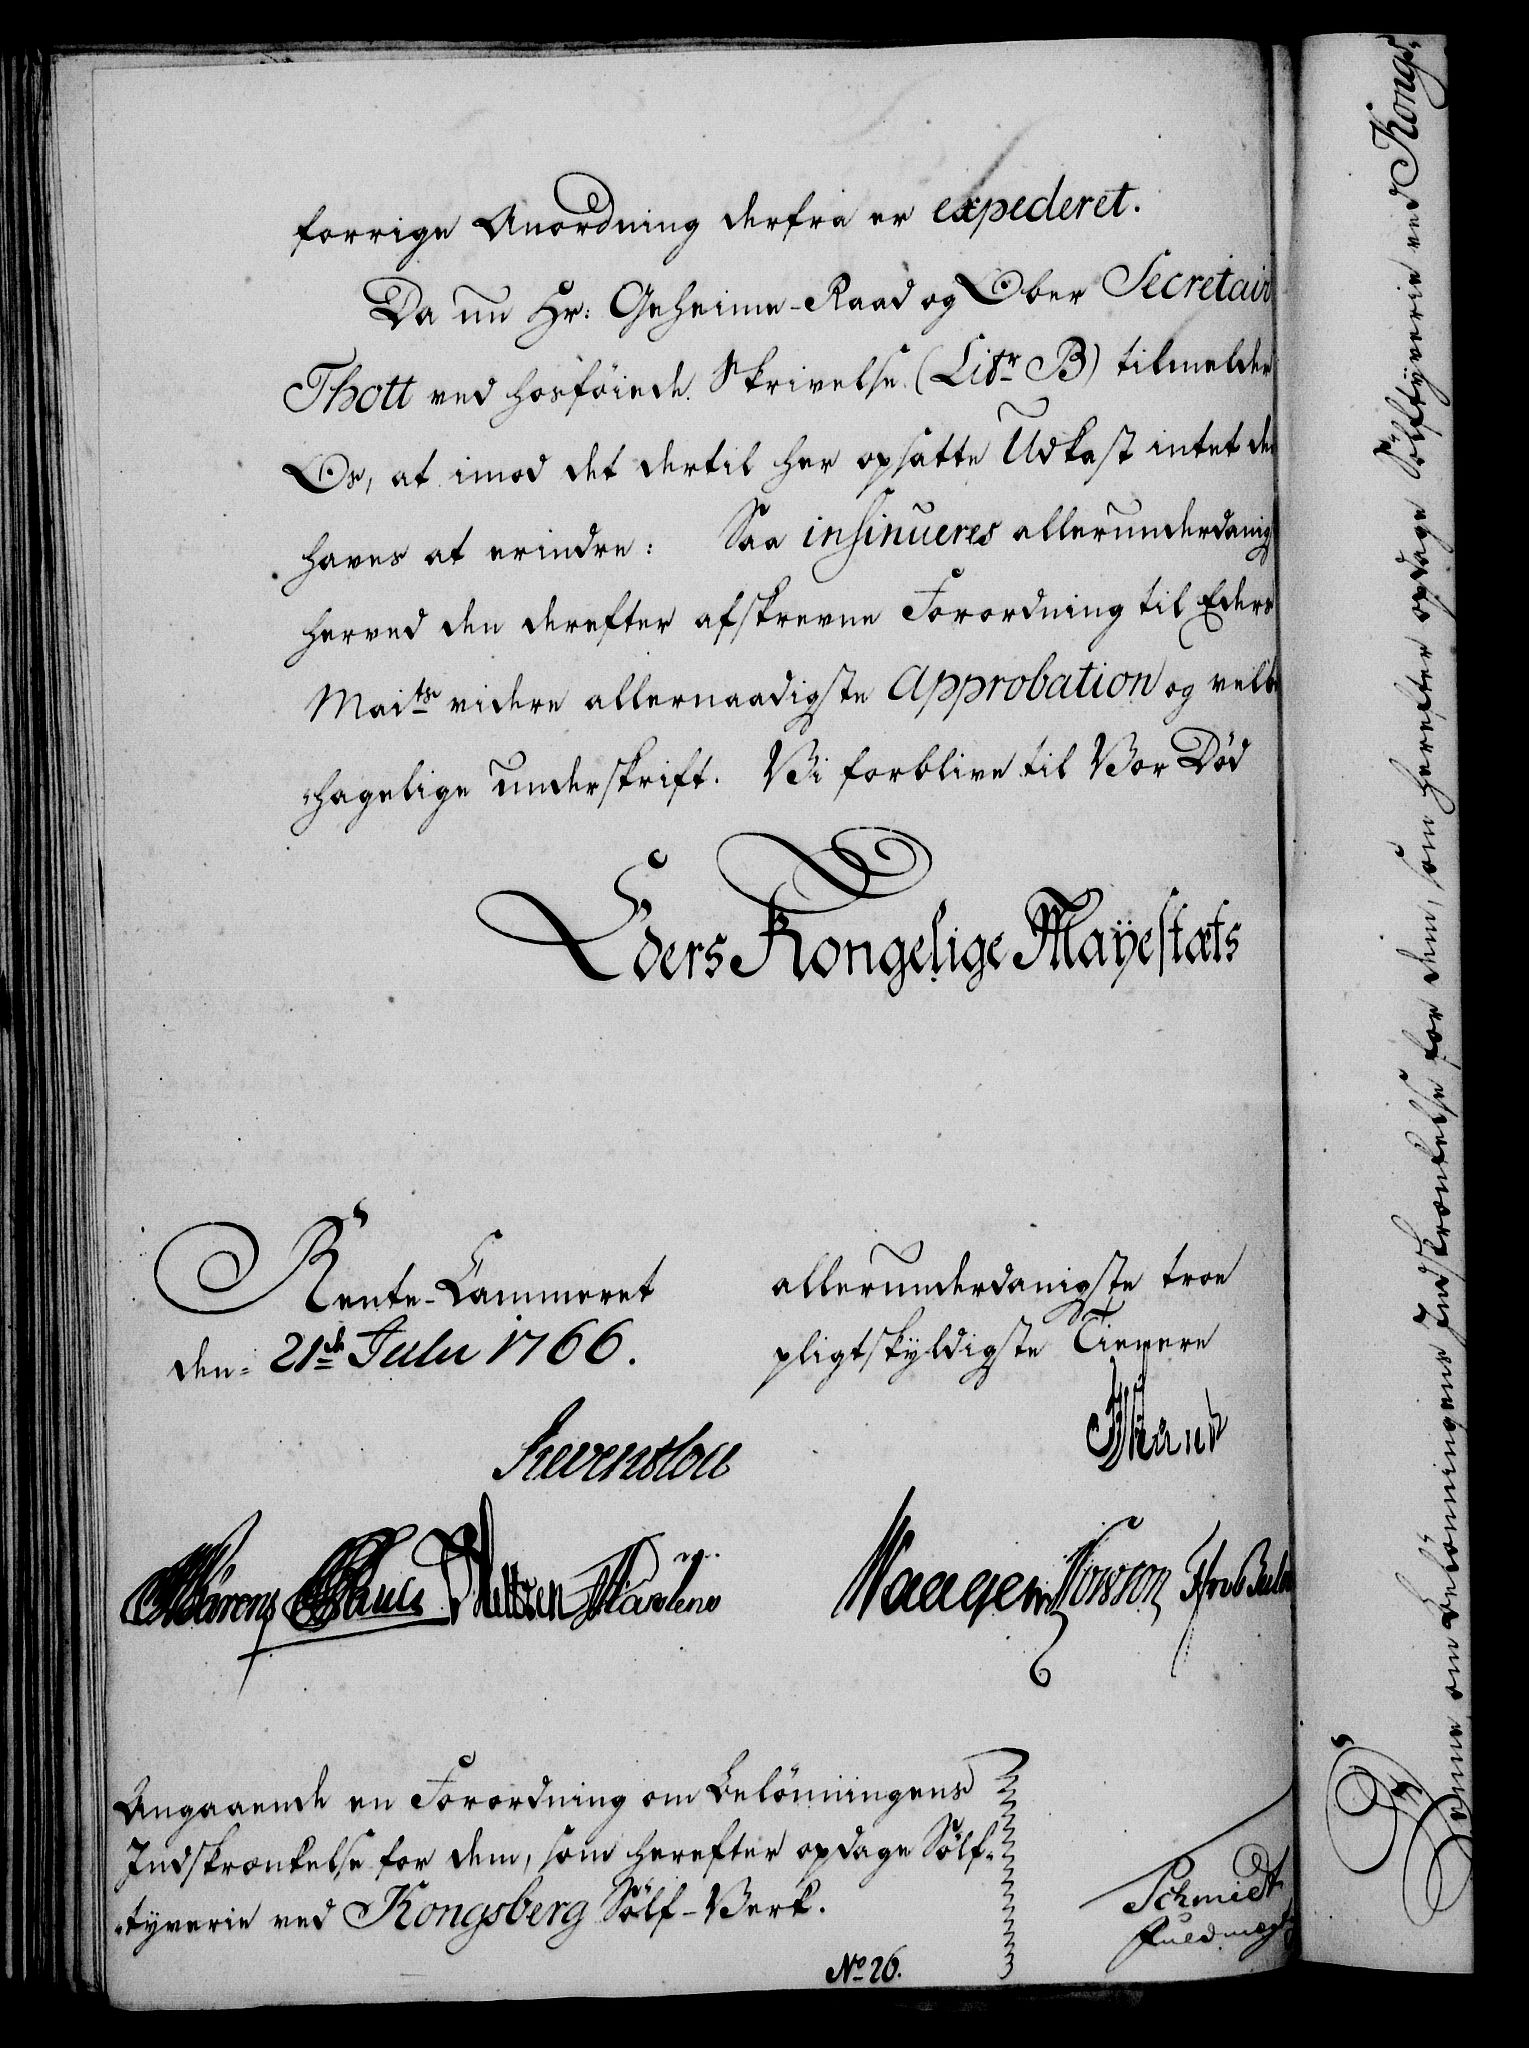 forrige Anordning derfra er expederet.
Da nu Hr: Geheime-Raad og Ober Secretair
Thott ved hosföiede Skrivelse (Litr B) tilmelder
Os, at imod det dertil her opsatte Udkast intet der
haves at erindre: Saa insinueres allerunderdanigst
herved den derefter afskrevne Forordning til Eders
Maits videre allernaadigste Approbation og velbe
hagelige underskrift. Vi forblive til Vor Död
Eders Kongelige Mayestæts
Rente-Cammeret
den: 21de Julii 1766.
allerunderdanigste troe
pligtskyldigste Tienere
Reventlou
Angaaende en Forordning om Belönningens
Indskrænkelse for dem, som herefter opdage Sölf-
tyverie ved Kongsberg Sölf-Verk.
No 26.
Schmidt
Fuldmægt
om Belönningens Indskrænkelse for dem, som herefter opdage Sölftyverie ved Kongs-